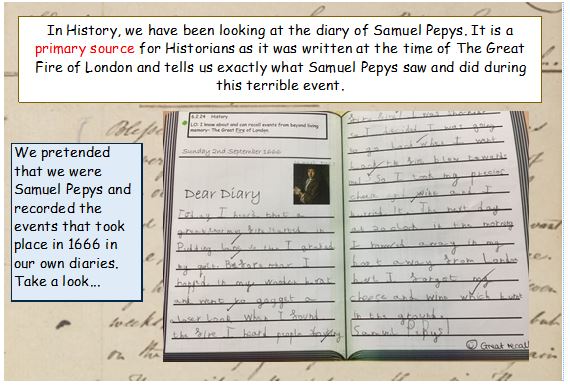 In History, we have been looking at the diary of Samuel Pepys. It is a
primary source for Historians as it was written at the time of The Great
Fire of London and tells us exactly what Samuel Pepys saw and did during
this terrible event.
We pretended
that we were
Samuel Pepys and
recorded the
events that took
place in 1666 in
our own diaries.
Take a look...
6.2.24 History
LO: I know about and can recall events from beyond living
memory- The Great Fire of London.
Sunday 2nd September 1666
Dear Diary
Today I heard that a
great started in
Pudding Lane so I grabed
my Before that I
hopped in my wooden boat
and went to a
closer look. When I found
the fire I heard people
I was
so I decided I was going
to go back when I went
back the fire blew towards
me! So I took my precious
cheese and wine and I
buried it. The next day
at in the morning
I rowed away in my
boat away from London
but I forgot my
cheese and wine which burnt
in the ground.
Samuel Pepys!
Great recall